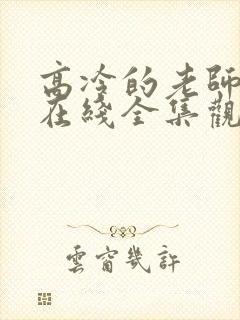 高冷的老師
在綫全集觀
雲窗幾許